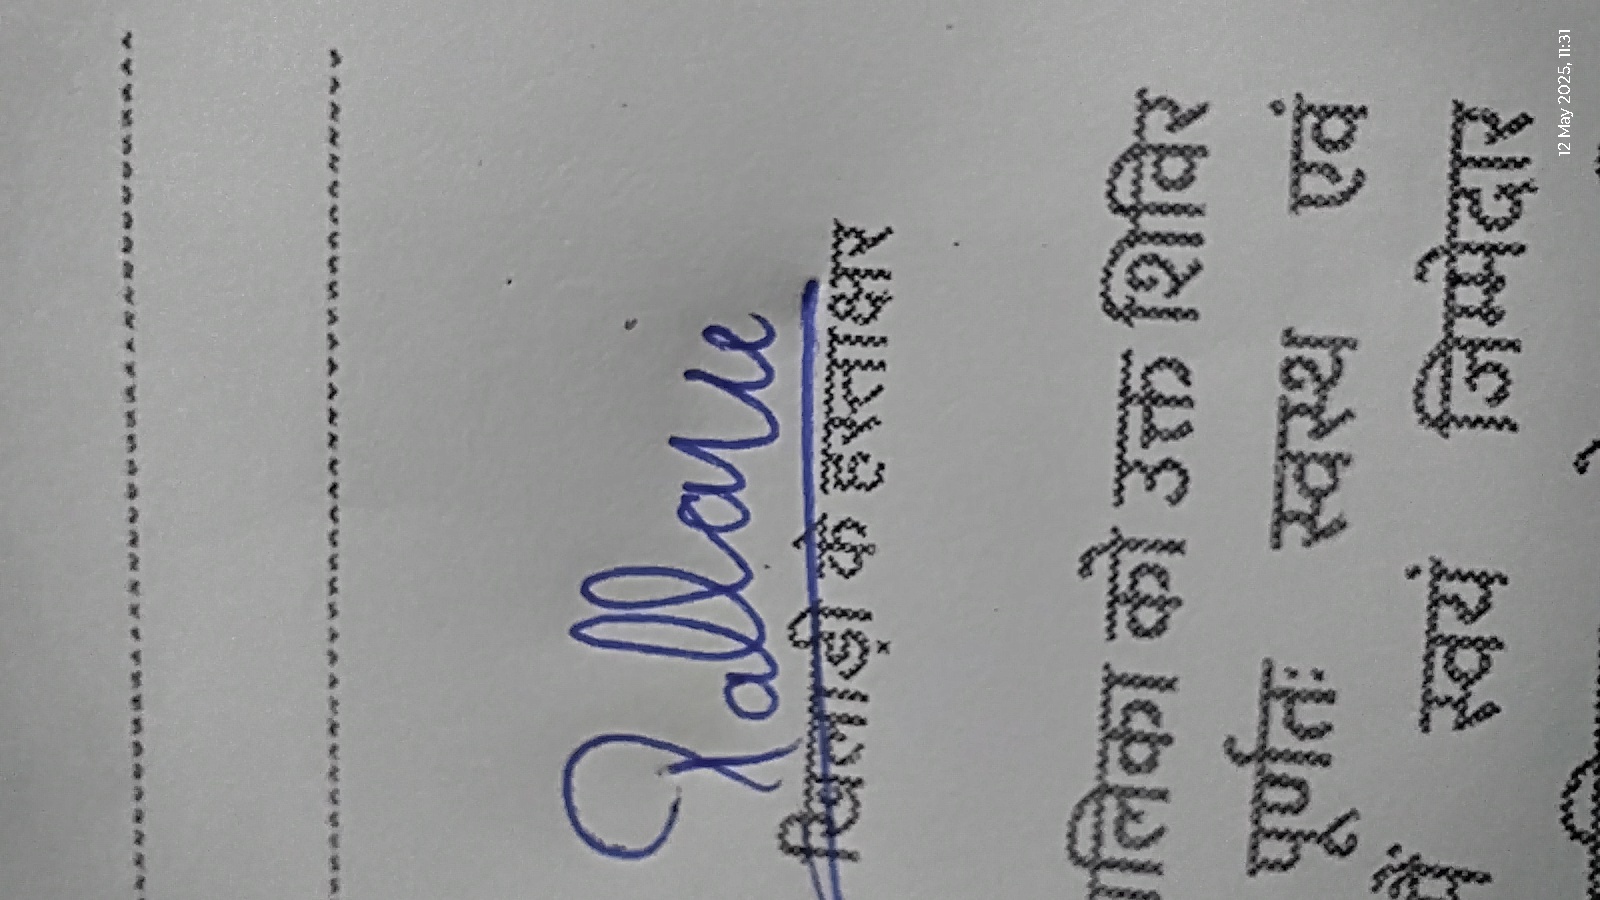 Pallavi
खिलाड़ी के हस्ताक्षर
लिका को उक्त शिविर
पूर्णतः स्वस्थ एवं
में स्वयं जिमेदार
12 May 2025, 11:31